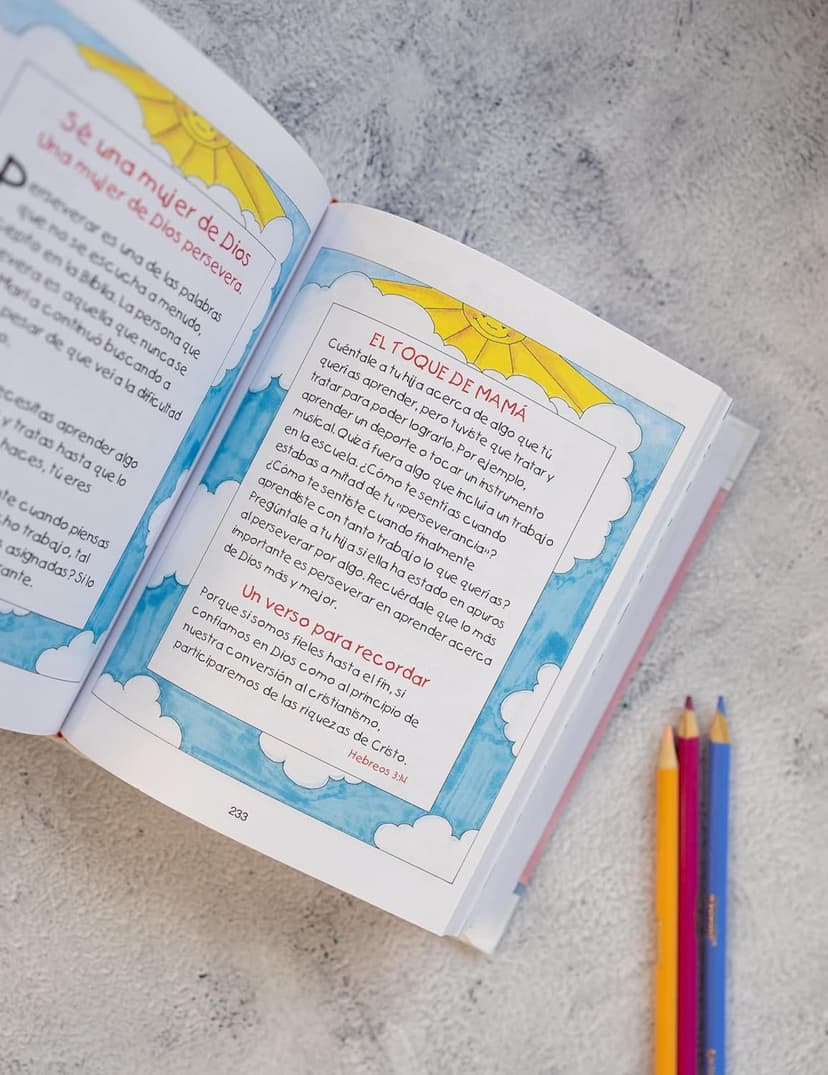 Sé una mujer de Dios
Una mujer de Dios persevera.
Perseverar es una de las palabras
que no se escucha a menudo,
en la Biblia. La persona que
es aquella que nunca se
continuó buscando a
pesar de que veía la dificultad
necesitas aprender algo
y tratas hasta que lo
haces, tú eres
cuando piensas
trabajo, tal
asignadas? Si lo
EL TOQUE DE MAMÁ
Cuéntale a tu hija acerca de algo que tú
querías aprender, pero tuviste que tratar y
tratar para poder lograrlo. Por ejemplo,
aprender un deporte o tocar un instrumento
musical. Quizá fuera algo que incluía un trabajo
en la escuela. ¿Cómo te sentías cuando
estabas a mitad de tu «perseverancia»?
¿Cómo te sentiste cuando finalmente
aprendiste con tanto trabajo lo que querías?
Pregúntale a tu hija si ella ha estado en apuros
al perseverar por algo. Recuérdale que lo más
importante es perseverar en aprender acerca
de Dios más y mejor.
Un verso para recordar
Porque si somos fieles hasta el fin, si
confiamos en Dios como al principio de
nuestra conversión al cristianismo,
participaremos de las riquezas de Cristo.
Hebreos 3:14
233